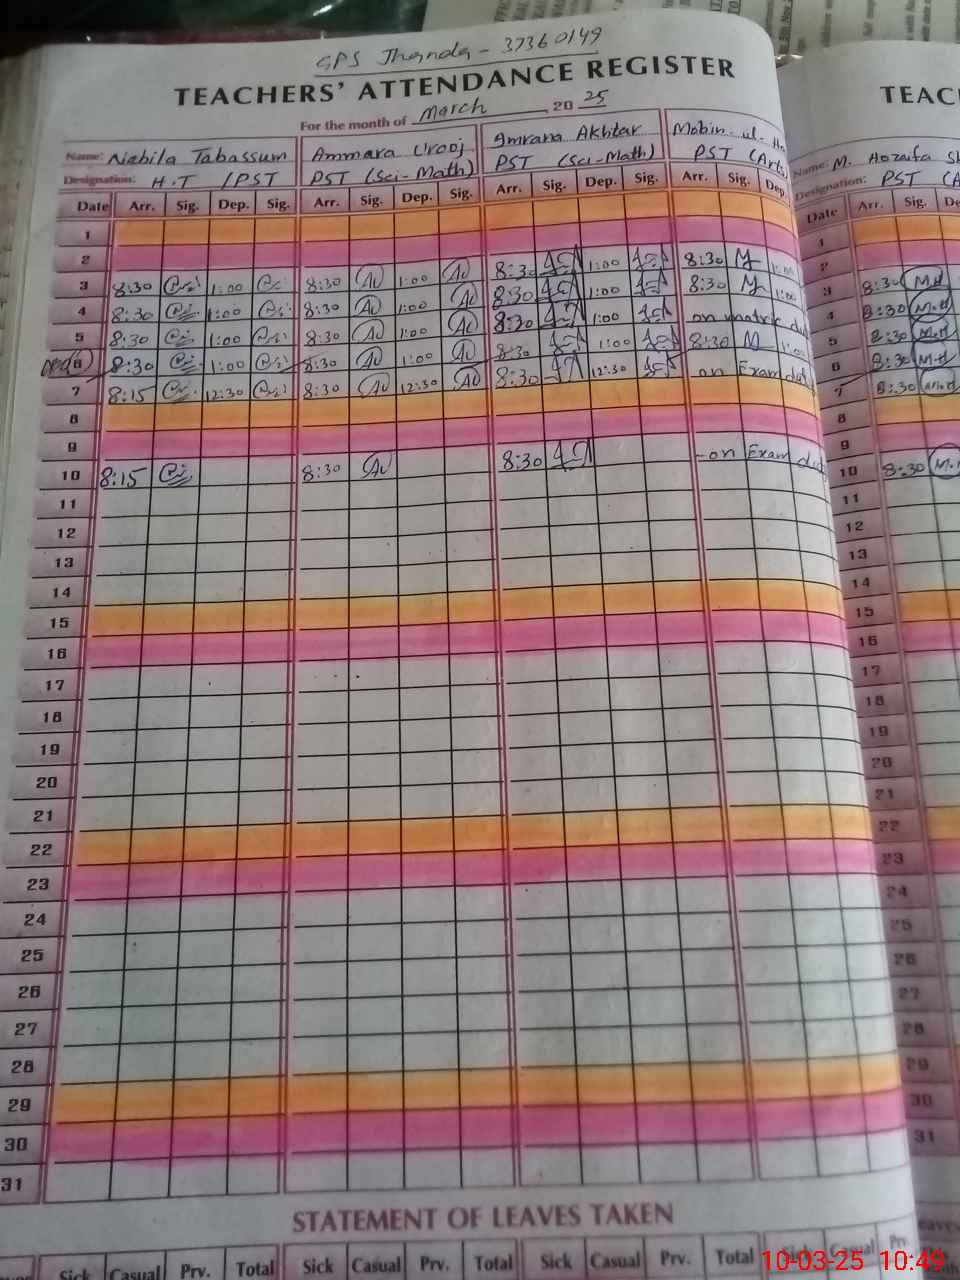 GPS Jhanda - 37360149
TEACHERS' ATTENDANCE REGISTER
For the month of March 2025
Name: Nabila Tabassum Ammara Urooj Imrana Akhtar Mobin-ul-
Designation: H.T / PST PST (Sci-Math) PST (Sci-Math) PST (Arts)
Date Arr. Sig. Dep. Sig. Arr. Sig. Dep. Sig. Arr. Sig. Dep. Sig. Arr. Sig. Dep.
1
2
3 8:30 1:00 8:30 1:00 8:30 1:00 8:30 1:00
4 8:30 1:00 8:30 1:00 8:30 1:00 8:30 1:00
5 8:30 1:00 8:30 1:00 8:30 1:00 on matric
6 8:30 1:00 8:30 1:00 8:30 1:00 8:30 M 1:00
7 8:15 12:30 8:30 12:30 8:30 12:30 on Exam duty
8
9
10 8:15 8:30 8:30 - on Exam duty
11
12
13
14
15
16
17
18
19
20
21
22
23
24
25
26
27
28
29
30
31
STATEMENT OF LEAVES TAKEN
Sick Casual Prv. Total Sick Casual Prv. Total Sick Casual Prv. Total Sick Casual Prv.
TEAC
Name: M. Hozaifa
Designation: PST
Date Arr. Sig. De
1
2
3 8:30 M.H
4 8:30 M.H
5 8:30 M.H
6 8:30 M.H
7 8:30 M.H
8
9
10 8:30 M.H
11
12
13
14
15
16
17
18
19
20
21
22
23
24
25
26
27
28
29
30
31
10-03-25 10:49